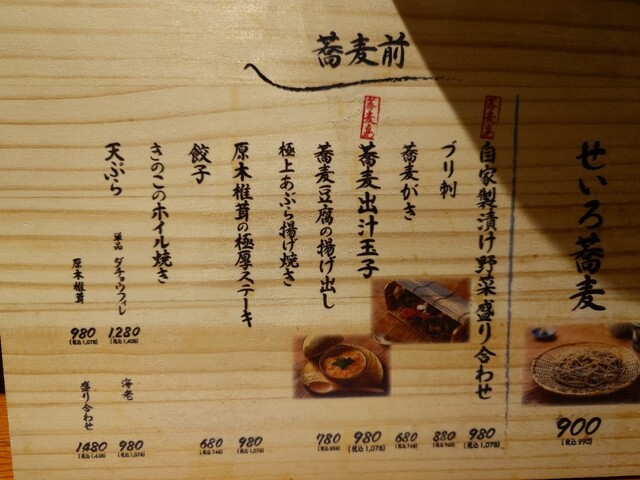 せいろ蕎麦
900
(税込 990)
蕎麦前
自家製漬け野菜盛り合わせ
980
(税込 1,078)
ブリ刺
880
(税込 968)
蕎麦がき
680
(税込 748)
蕎麦出汁玉子
980
(税込 1,078)
蕎麦豆腐の揚げ出し
780
(税込 858)
極上あぶら揚げ焼き
原木椎茸の極厚ステーキ
980
(税込 1,078)
餃子
680
(税込 748)
きのこのホイル焼き
天ぷら
単品
ダチョウフィレ
1,280
(税込 1,408)
海老
980
(税込 1,078)
原木椎茸
980
(税込 1,078)
盛り合わせ
1480
(税込 1,628)